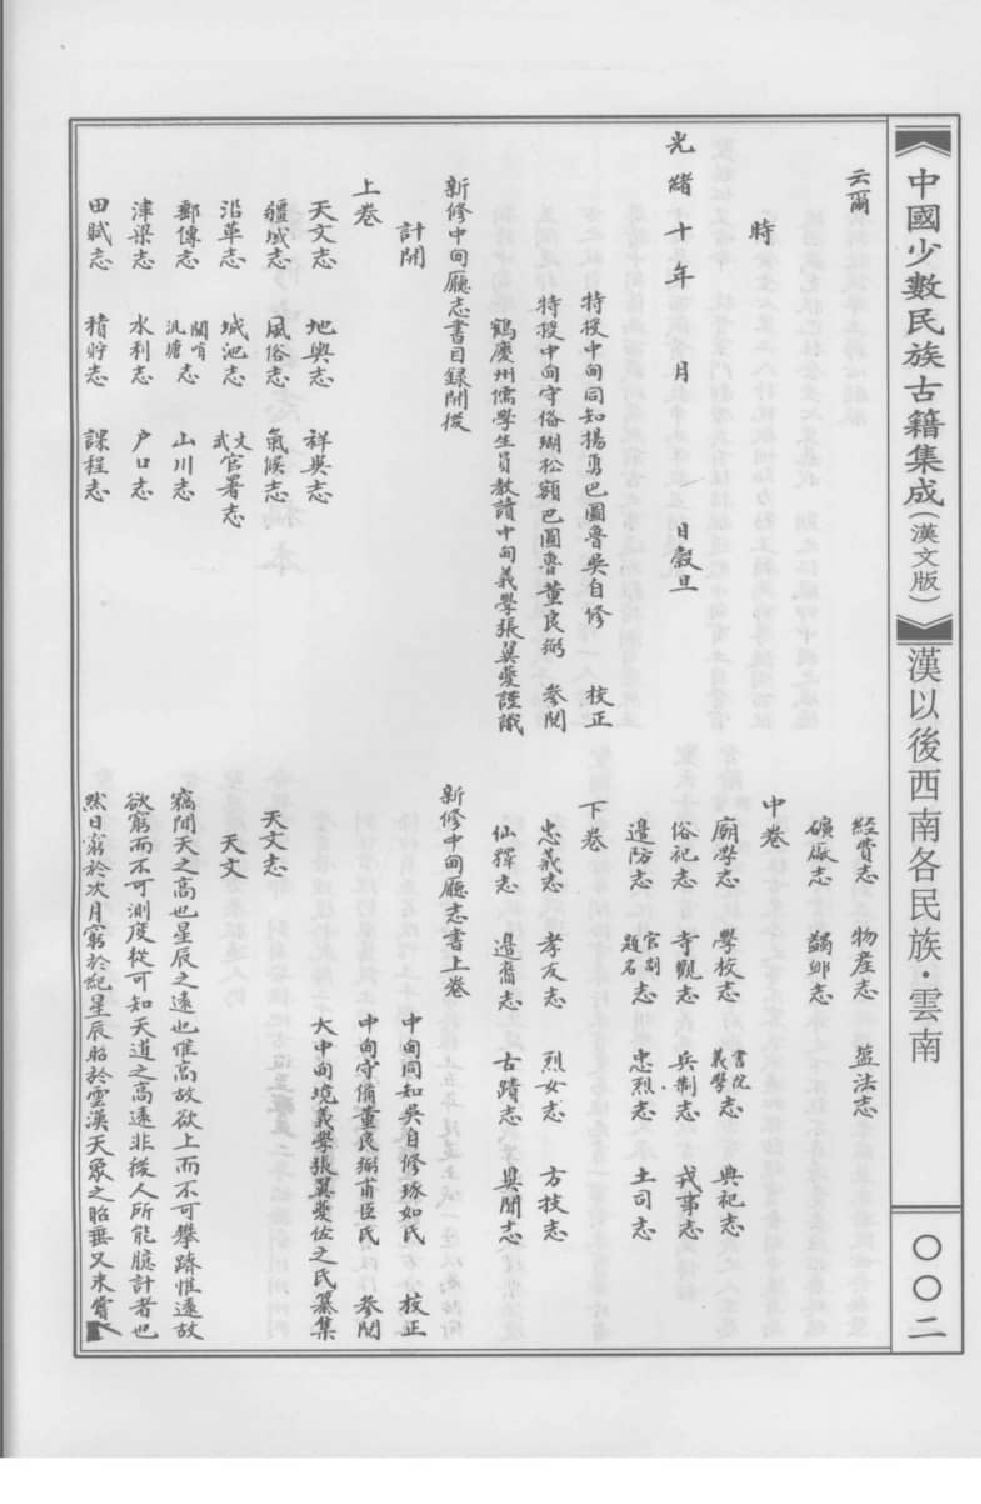 《中國少數民族古籍集成（漢文版）》漢以後西南各民族·雲南
〇〇二
云爾
時
光緒十年 月 日穀旦
特授中甸同知揚勇巴圖魯吳自修 校正
特授中甸守俻瑚松額巴圖魯董良弼 參閱
鶴慶州儒學生員教讀中甸義學張翼夔謹識
新修中甸廳志書目録開後
計開
上卷
天文志 地輿志 祥異志
疆域志 風俗志 氣候志
沿革志 城池志 文武官署志
郵傳志 關哨汛塘志 山川志
津梁志 水利志 户口志
田賦志 積貯志 課程志
經費志 物産志 塩法志
礦厰志 蠲卹志
中卷
廟學志 學校志 書院義學志 典祀志
俗祀志 寺觀志 兵制志 戎事志
邊防志 官制題名志 忠烈志 土司志
下卷
忠義志 孝友志 烈女志 方技志
仙釋志 過裔志 古蹟志 異聞志
新修中甸廳志書上卷
中甸同知吳自修琢如氏 校正
中甸守備董良弼甫臣氏 參閱
大中甸境義學張翼夔佐之氏纂集
天文志
天文
竊聞天之高也星辰之遠也惟高故欲上而不可攀躋惟遠故
欲窮而不可測度從可知天道之高遠非後人所能臆計者也
然日窮於次月窮於紀星辰昭於雲漢天象之昭垂又未嘗